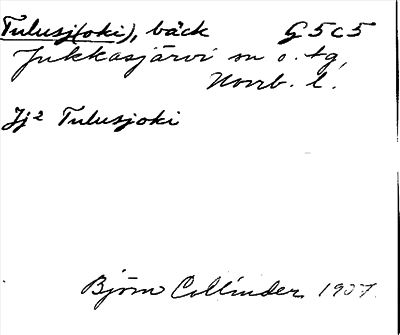 Tulusj(oki), bäck G5c5
Jukkasjärvi sn o. tg,
Norrb. l.
Jj² Tulusjoki
Björn Collinder 1937.